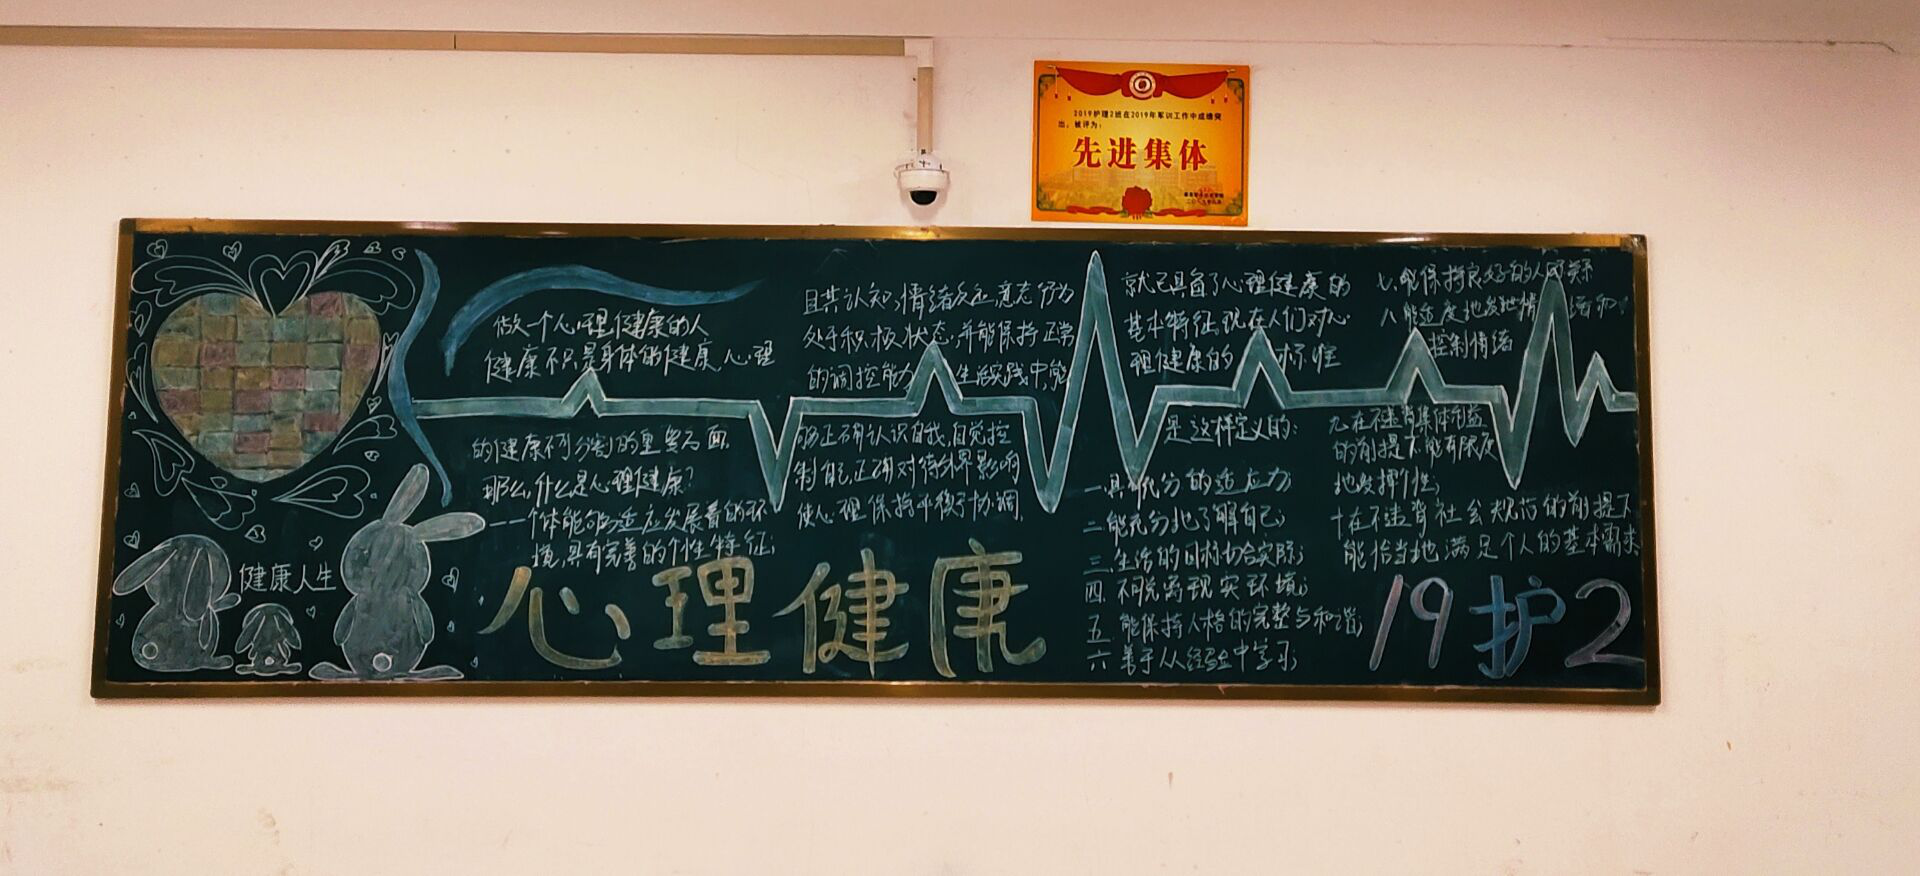 2019护理2班在2019年军训工作中成绩突
出，被评为：
先进集体
做一个心理健康的人
健康不只是身体的健康,心理
的健康不可分割的重要方面,
那么,什么是心理健康?
一一个体能够适应发展着的环
境,具有完善的个性特征;
且其认知,情绪反应,意志行为
处于积极状态,并能保持正常
的调控能力 生活实践中,能
够正确认识自我,自觉控
制自己,正确对待外界影响
使心理保持平稳于协调,
就已具备了心理健康的
基本特征,现在人们对心
理健康的 标准
是这样定义的:
一.具 充分的适应力;
二.能充分地了解自己;
三.生活的目标切合实际;
四.不脱离现实环境;
五.能保持人格的完整与和谐;
六 善于从经验中学习;
七.能保持良好的人际关系
八 能适度地发泄情 绪和
控制情绪
九.在不违背集体利益
的前提下能有限度
地发挥个性;
十在不违背社会规范的前提下
能恰当地满足个人的基本需求
健康人生
心理健康
19护2